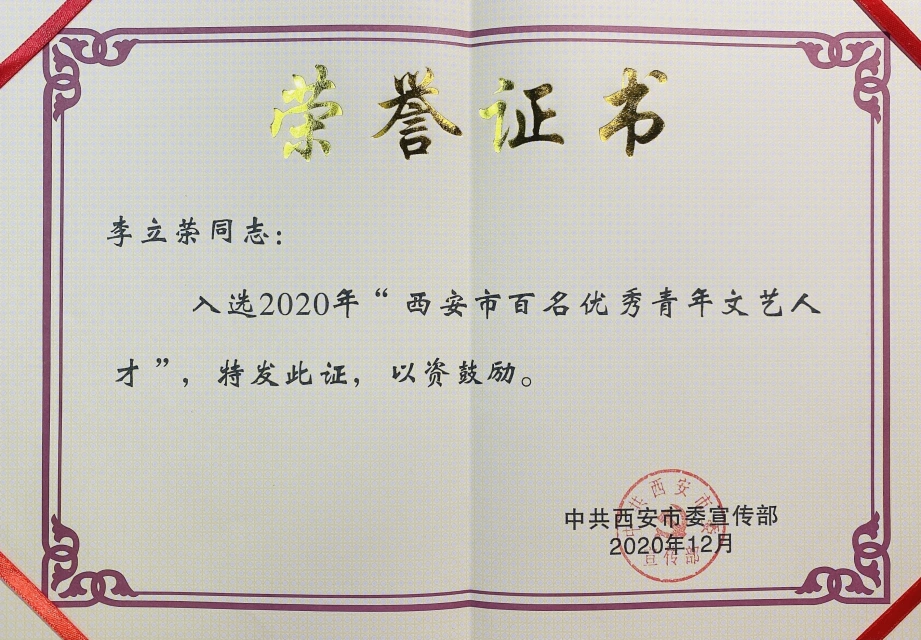 荣誉证书
李立荣同志：
入选2020年“西安市百名优秀青年文艺人
才”，特发此证，以资鼓励。
中共西安市委宣传部
2020年12月
中共西安市委
宣传部